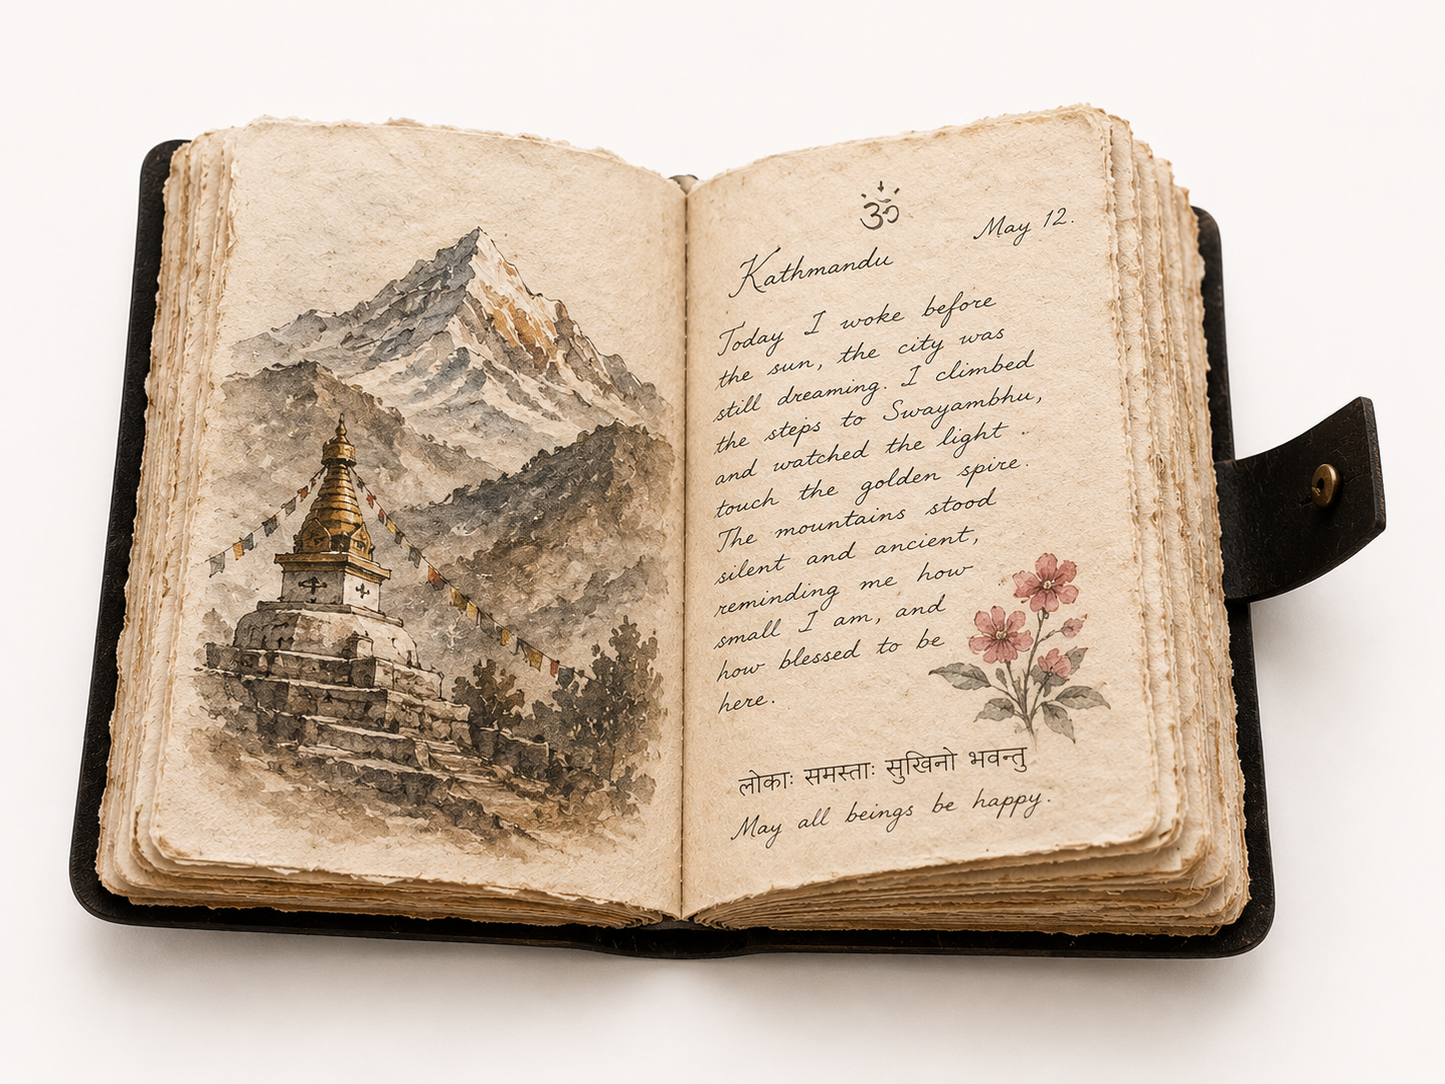 ॐ
May 12.
Kathmandu
Today I woke before
the sun, the city was
still dreaming. I climbed
the steps to Swayambhu,
and watched the light
touch the golden spire.
The mountains stood
silent and ancient,
reminding me how
small I am, and
how blessed to be
here.
लोकाः समस्ताः सुखिनो भवन्तु
May all beings be happy.